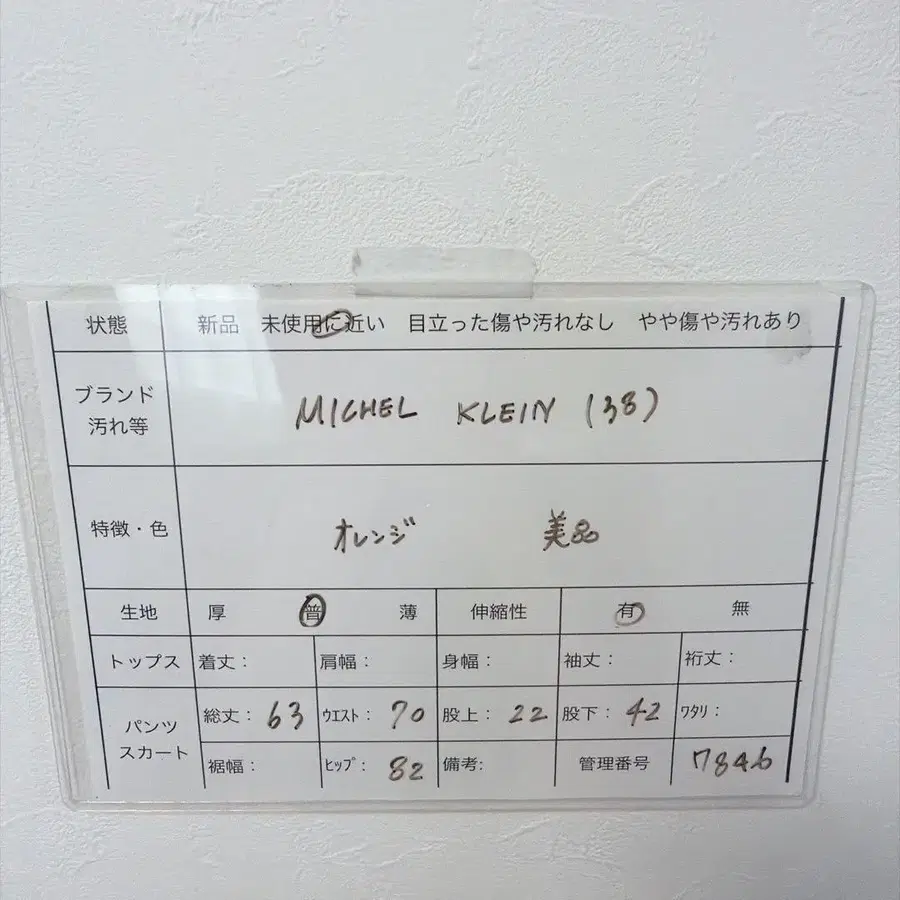 状態 新品 未使用に近い 目立った傷や汚れなし やや傷や汚れあり
ブランド
汚れ等
MICHEL KLEIN (38)
特徴・色 オレンジ 美品
生地 厚 普 薄 伸縮性 有 無
トップス 着丈: 肩幅: 身幅: 袖丈: 裄丈:
パンツ
スカート
総丈: 63 ウエスト: 70 股上: 22 股下: 42 ワタリ:
裾幅: ヒップ: 82 備考: 管理番号 7846